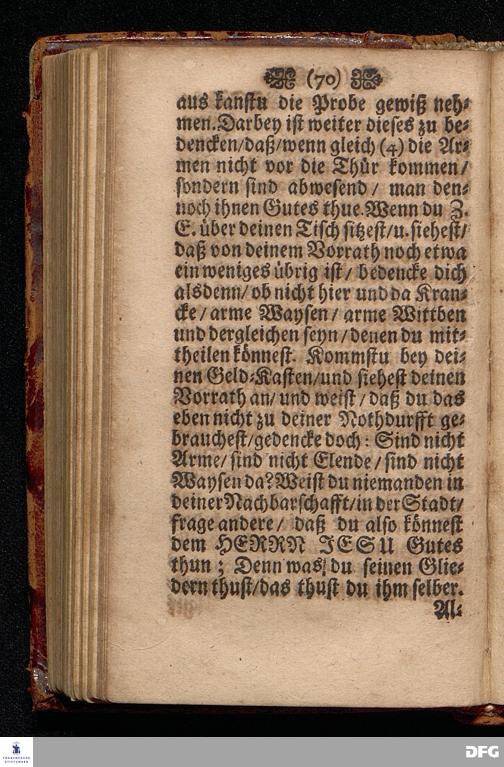 (70)
aus kanstu die Probe gewiß neh⸗
men. Darbey ist weiter dieses zu be⸗
dencken/daß/wenn gleich (4) die Ar⸗
men nicht vor die Thür kommen/
sondern sind abwesend/ man den⸗
noch ihnen Gutes thue. Wenn du Z.
E. über deinen Tisch sitzest/u. siehest/
daß von deinem Vorrath noch etwa
ein weniges übrig ist/ bedencke dich
alsdenn/ ob nicht hier und da Kran⸗
cke/ arme Waysen/ arme Wittben
und dergleichen seyn/ denen du mit⸗
theilen könnest. Kommstu bey dei⸗
nen Geld⸗Kasten/und siehest deinen
Vorrath an/ und weist/ daß du das
eben nicht zu deiner Nothdurfft ge⸗
brauchest/gedencke doch: Sind nicht
Arme/ sind nicht Elende/ sind nicht
Waysen da? Weist du niemanden in
deiner Nachbarschafft/in der Stadt/
frage andere/ daß du also könnest
dem HERRN JESU Gutes
thun; Denn was du seinen Glie⸗
dern thust/das thust du ihm selber.
Al⸗
FRANCKESCHE
STIFTUNGEN
DFG